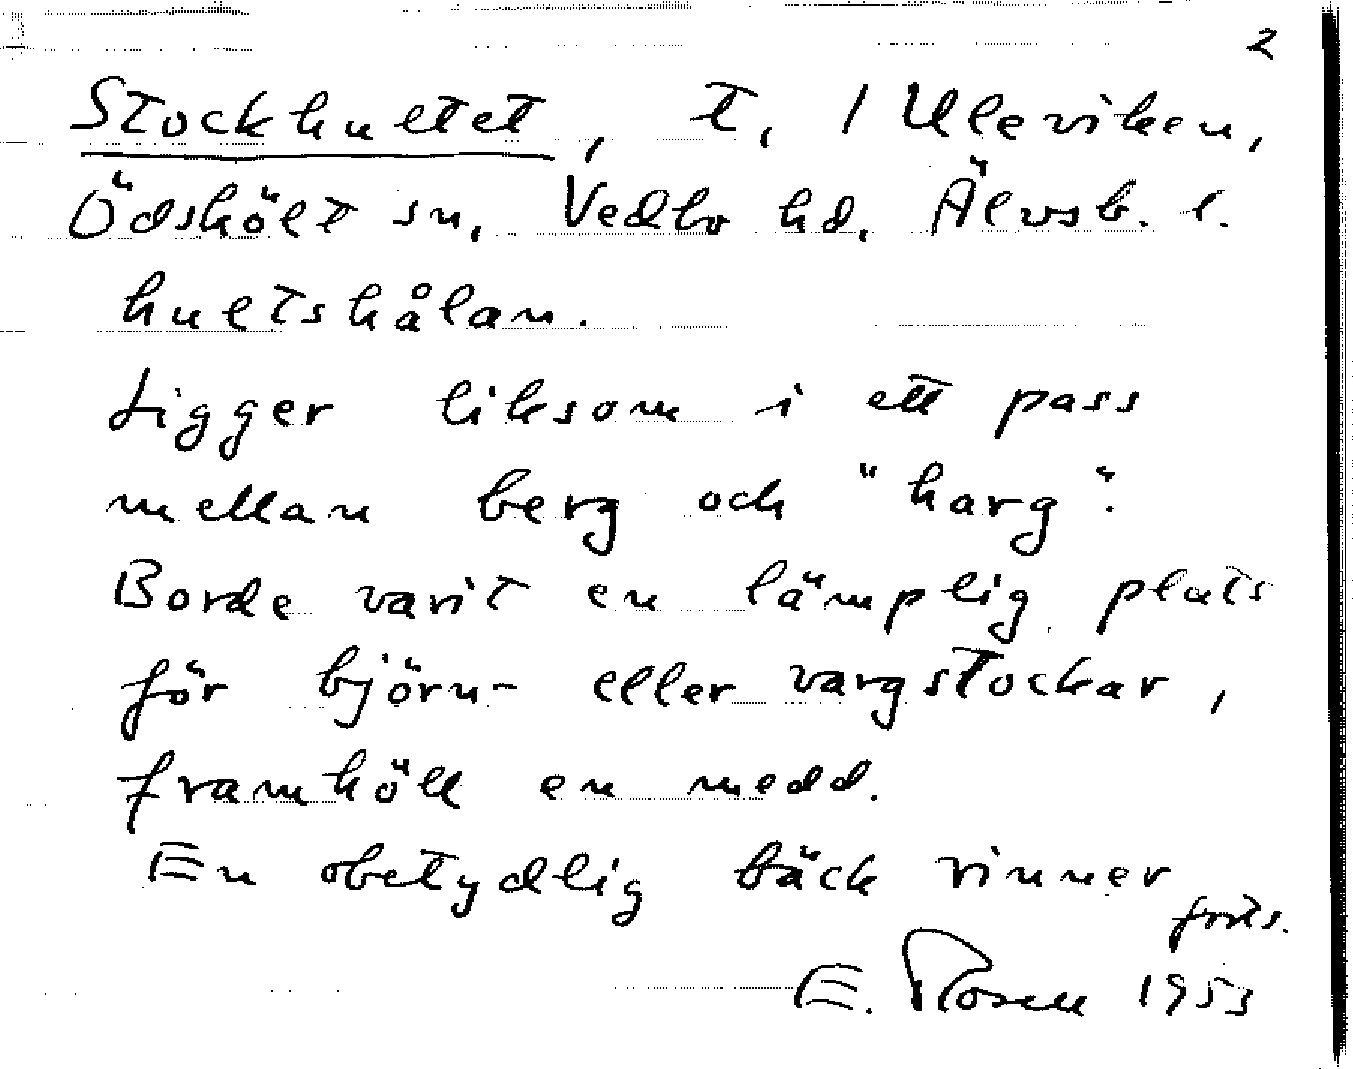 2
Stockhultet, t. 1 Uleviken,
Ödskölt sn, Vedbo hd, Älvsb. l.
hultshålan.
Ligger liksom i ett pass
mellan berg och "harg".
Borde varit en lämplig plats
för björn- eller vargstockar,
framhöll en medd.
En obetydlig bäck rinner
forts.
E. Rosell 1953